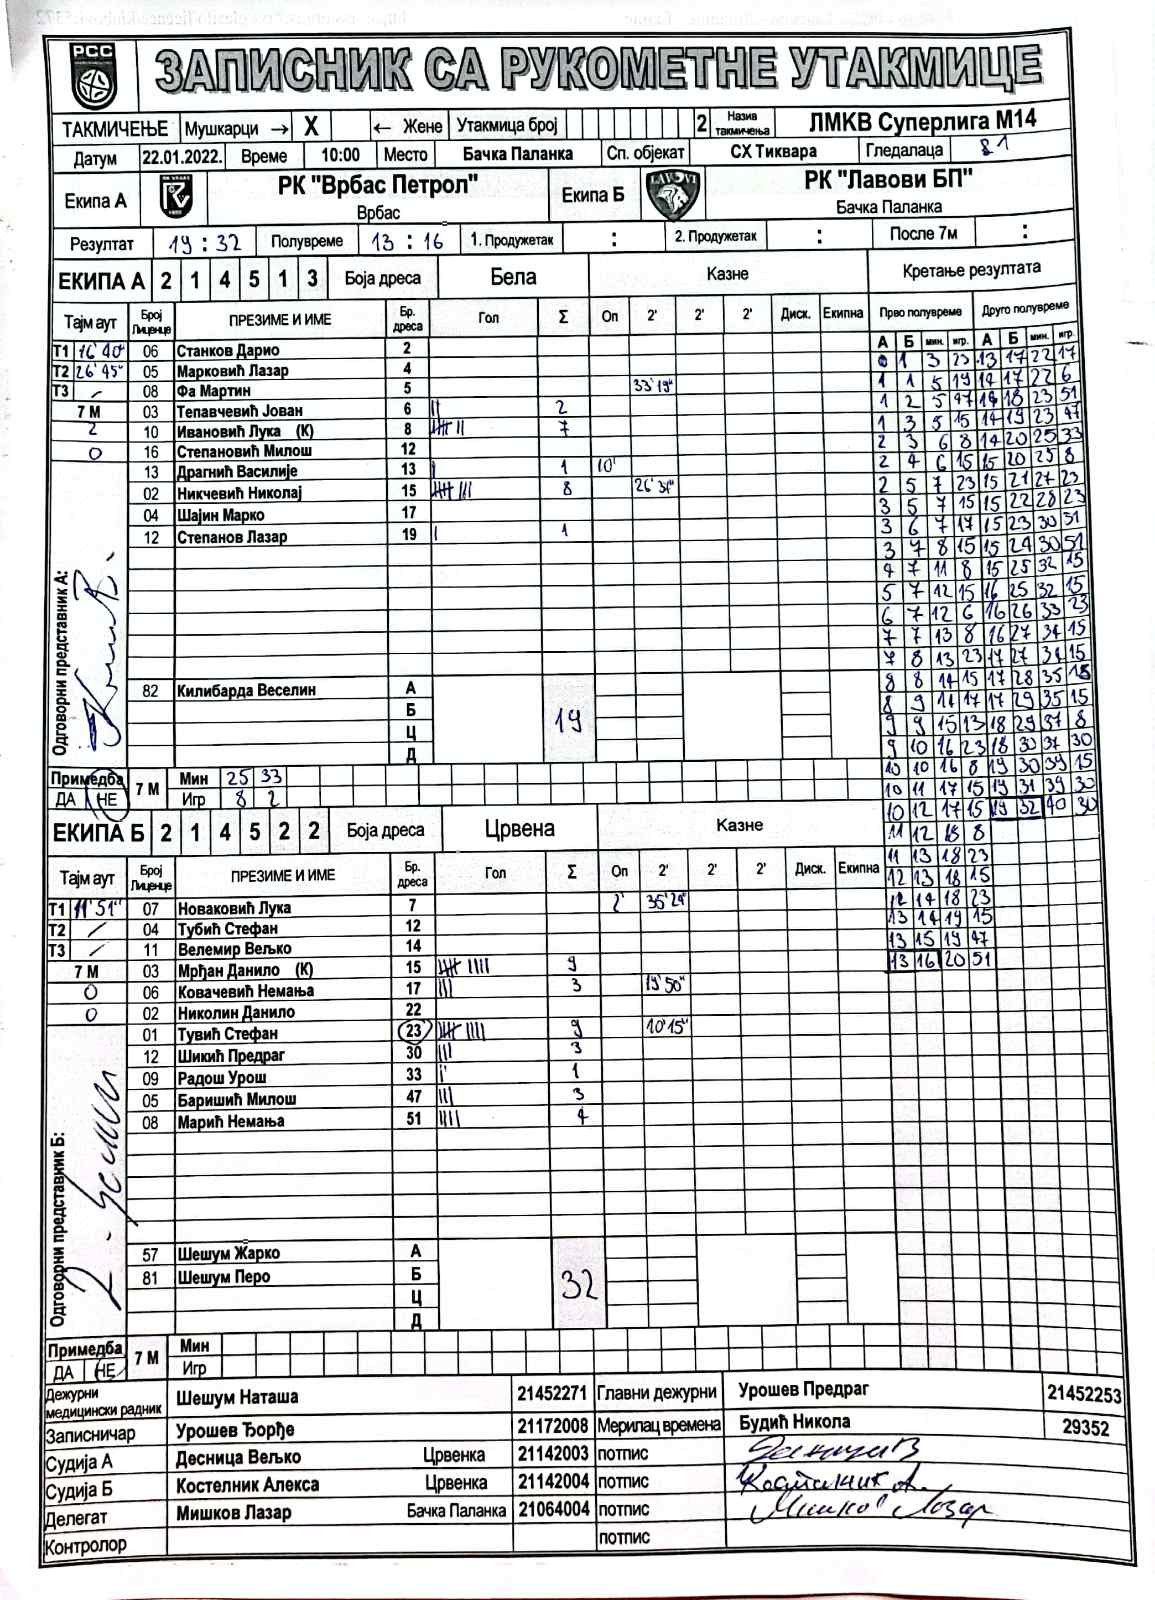 РСС
ЗАПИСНИК СА РУКОМЕТНЕ УТАКМИЦЕ
ТАКМИЧЕЊЕ Мушкарци → X ← Жене Утакмица број 2 Назив такмичења ЛМКВ Суперлига М14
Датум 22.01.2022. Време 10:00 Место Бачка Паланка Сп. објекат СХ Тиквара Гледалаца 81
Екипа А РК "Врбас Петрол" Врбас Екипа Б РК "Лавови БП" Бачка Паланка
Резултат 19 : 32 Полувреме 13 : 16 1. Продужетак : 2. Продужетак : После 7м :
ЕКИПА А 2 1 4 5 1 3 Боја дреса Бела Казне Кретање резултата
Тајм аут Број Лиценце ПРЕЗИМЕ И ИМЕ Бр. дреса Гол Σ Оп 2' 2' 2' Диск. Екипна Прво полувреме Друго полувреме
А Б мин. игр. А Б мин. игр.
Т1 16'40" 06 Станков Дарио 2
Т2 26'45" 05 Марковић Лазар 4
Т3 / 08 Фа Мартин 5 33'19"
7 М 03 Тепавчевић Јован 6 || 2
2 10 Ивановић Лука (К) 8 7
0 16 Степановић Милош 12
13 Драгнић Василије 13 | 1 10'
02 Никчевић Николај 15 8 26'31"
04 Шајин Марко 17
12 Степанов Лазар 19 | 1
0 1 3 23 13 17 22 17
1 1 5 19 14 17 22 6
1 2 5 47 14 18 23 51
1 3 5 15 14 19 23 47
2 3 6 8 14 20 25 33
2 4 6 15 15 20 25 8
2 5 7 23 15 21 27 23
3 5 7 15 15 22 28 23
3 6 7 17 15 23 30 51
3 7 8 15 15 24 30 51
4 7 11 8 15 25 32 15
5 7 12 15 16 25 32 15
6 7 12 6 16 26 33 23
7 7 13 8 16 27 34 15
7 8 13 23 17 27 34 15
8 8 14 15 17 28 35 15
8 9 14 17 17 29 35 15
9 9 15 13 18 29 37 8
9 10 16 23 18 30 37 30
10 10 16 8 19 30 39 15
10 11 17 15 19 31 39 30
10 12 17 15 19 32 40 30
11 12 18 8
11 13 18 23
12 13 18 15
12 14 18 23
13 14 19 15
13 15 19 47
13 16 20 51
Одговорни представник А:
82 Килибарда Веселин А
Б
Ц
Д
19
Примедба ДА НЕ 7 М Мин 25 33
Игр 8 2
ЕКИПА Б 2 1 4 5 2 2 Боја дреса Црвена Казне
Тајм аут Број Лиценце ПРЕЗИМЕ И ИМЕ Бр. дреса Гол Σ Оп 2' 2' 2' Диск. Екипна
Т1 11'51" 07 Новаковић Лука 7 2' 35'29"
Т2 / 04 Тубић Стефан 12
Т3 / 11 Велемир Вељко 14
7 М 03 Мрђан Данило (К) 15 9
0 06 Ковачевић Немања 17 ||| 3 19'50"
0 02 Николин Данило 22
01 Тувић Стефан 23 9 10'15"
12 Шикић Предраг 30 ||| 3
09 Радош Урош 33 | 1
05 Баришић Милош 47 ||| 3
08 Марић Немања 51 |||| 4
Одговорни представник Б:
57 Шешум Жарко А
81 Шешум Перо Б
Ц
Д
32
Примедба ДА НЕ 7 М Мин
Игр
Дежурни медицински радник Шешум Наташа 21452271 Главни дежурни Урошев Предраг 21452253
Записничар Урошев Ђорђе 21172008 Мерилац времена Будић Никола 29352
Судија А Десница Вељко Црвенка 21142003 потпис
Судија Б Костелник Алекса Црвенка 21142004 потпис Костелник А.
Делегат Мишков Лазар Бачка Паланка 21064004 потпис Мишков Лазар
Контролор потпис